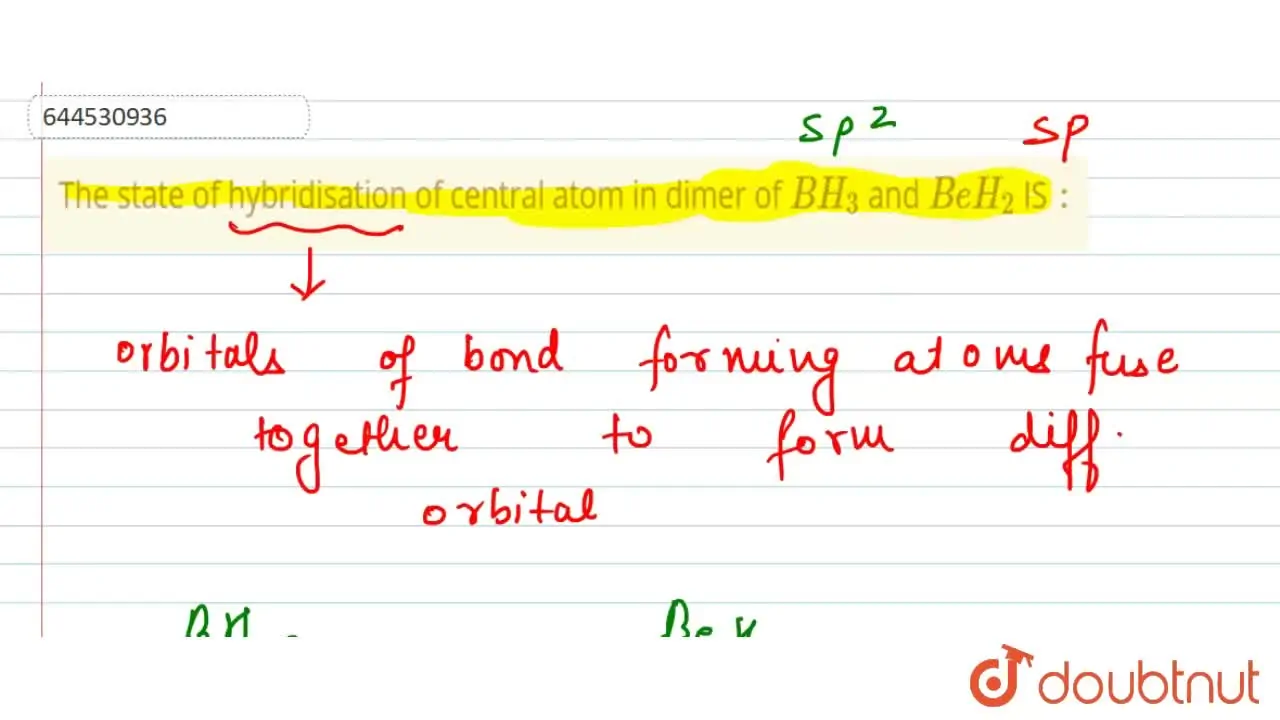 644530936
sp² sp
The state of hybridisation of central atom in dimer of BH₃ and BeH₂ IS :
orbitals of bond forming atoms fuse
together to form diff.
orbital
doubtnut